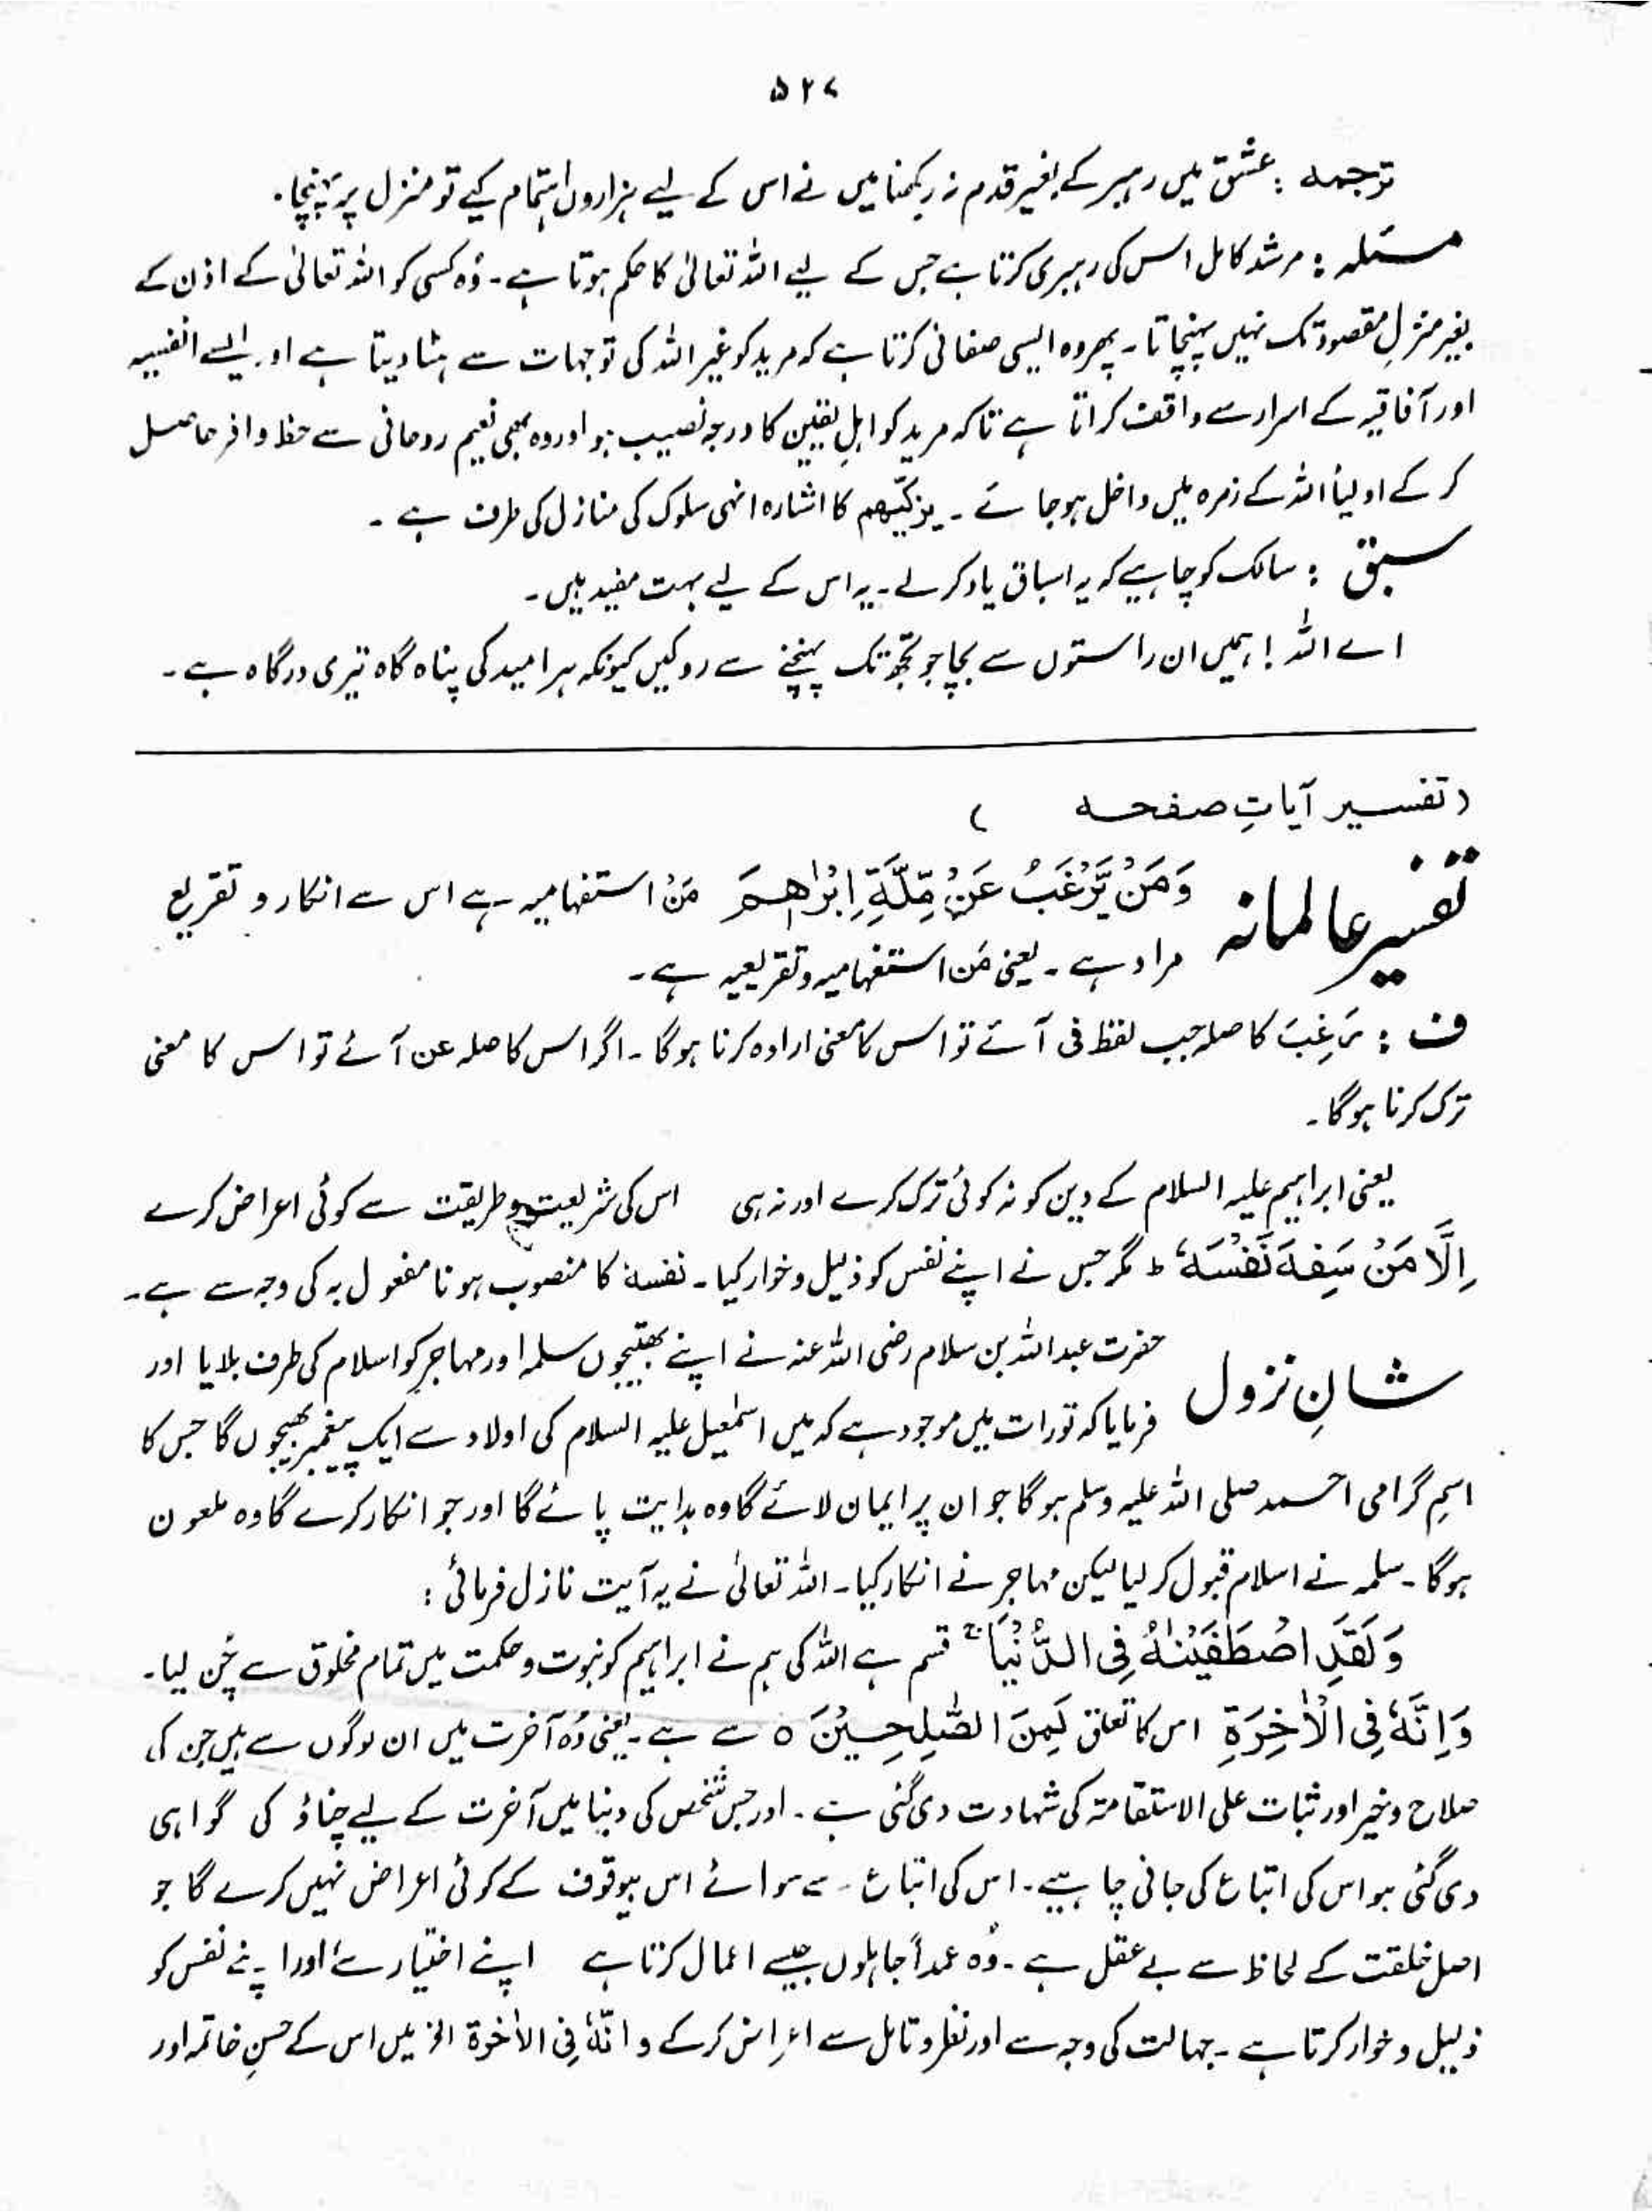 ۵۲۷
ترجمہ : عشق میں رہبر کے بغیر قدم نہ رکھنا میں نے اس کے لیے ہزاروں اہتمام کیے تو منزل پر پہنچا۔
مسئلہ : مرشد کامل اس کی رہبری کرتا ہے جس کے لیے اللہ تعالیٰ کا حکم ہوتا ہے۔ وُہ کسی کو اللہ تعالیٰ کے اذن کے
بغیر منزلِ مقصود تک نہیں پہنچاتا۔ پھر وہ ایسی صفائی کرتا ہے کہ مرید کو غیر اللہ کی توجہات سے ہٹا دیتا ہے اور ایسے انفسیہ
اور آفاقیہ کے اسرار سے واقف کراتا ہے تاکہ مرید کو اہلِ یقین کا درجہ نصیب ہو اور وہ بھی نعیم روحانی سے حظ وافر حاصل
کر کے اولیأ اللہ کے زمرہ میں داخل ہو جائے۔ یزکّیھم کا اشارہ انہی سلوک کی منازل کی طرف ہے۔
سبق : سالک کو چاہیے کہ یہ اسباق یاد کر لے۔ یہ اس کے لیے بہت مفید ہیں۔
اے اللہ ! ہمیں ان راستوں سے بچا جو تجھ تک پہنچنے سے روکیں کیونکہ ہر امید کی پناہ گاہ تیری درگاہ ہے۔
(تفسیر آیاتِ صفحہ )
تفسیر عالمانہ وَمَنْ یَّرْغَبُ عَنْ مِّلَّةِ اِبْرٰاهِمَ مَنْ استفہامیہ ہے اس سے انکار و تقریع
مراد ہے۔ یعنی مَن استفہامیہ و تقریعیہ ہے۔
ف : رَغِبَ کا صلہ جب لفظ فی آئے تو اس کا معنی ارادہ کرنا ہوگا۔ اگر اس کا صلہ عن آئے تو اس کا معنی
ترک کرنا ہوگا۔
یعنی ابراہیم علیہ السلام کے دین کو نہ کوئی ترک کرے اور نہ ہی اس کی شریعت و طریقت سے کوئی اعراض کرے
اِلَّا مَنْ سَفِهَ نَفْسَهٗ ط مگر جس نے اپنے نفس کو ذلیل و خوار کیا۔ نفسهٗ کا منصوب ہونا مفعول بہ کی وجہ سے ہے۔
شانِ نزول حضرت عبداللہ بن سلام رضی اللہ عنہ نے اپنے بھتیجوں سلمہ اور مہاجر کو اسلام کی طرف بلایا اور
فرمایا کہ تورات میں موجود ہے کہ میں اسمٰعیل علیہ السلام کی اولاد سے ایک پیغمبر بھیجوں گا جس کا
اسمِ گرامی احمد صلی اللہ علیہ وسلم ہوگا جو ان پر ایمان لائے گا وہ ہدایت پائے گا اور جو انکار کرے گا وہ ملعون
ہوگا۔ سلمہ نے اسلام قبول کر لیا لیکن مہاجر نے انکار کیا۔ اللہ تعالیٰ نے یہ آیت نازل فرمائی :
وَلَقَدِ اصْطَفَیْنٰهُ فِی الدُّنْیَا ج قسم ہے اللہ کی ہم نے ابراہیم کو نبوت و حکمت میں تمام مخلوق سے چُن لیا۔
وَاِنَّهٗ فِی الْاٰخِرَةِ اس کا تعلق لَمِنَ الصّٰلِحِیْنَ ○ سے ہے۔ یعنی وُہ آخرت میں ان لوگوں سے ہیں جن کی
صلاح و خیر اور ثبات علی الاستقامۃ کی شہادت دی گئی ہے۔ اور جس شخص کی دنیا میں آخرت کے لیے چناؤ کی گواہی
دی گئی ہو اس کی اتباع کی جانی چاہیے۔ اس کی اتباع سے سوائے اس بیوقوف کے کوئی اعراض نہیں کرے گا جو
اصل خلقت کے لحاظ سے بے عقل ہے۔ وُہ عمداً جاہلوں جیسے اعمال کرتا ہے اپنے اختیار سے اور اپنے نفس کو
ذلیل و خوار کرتا ہے۔ جہالت کی وجہ سے اور نظر و تامل سے اعراض کر کے و انّهٗ فِی الاٰخرة الخ میں اس کے حسنِ خاتمہ اور